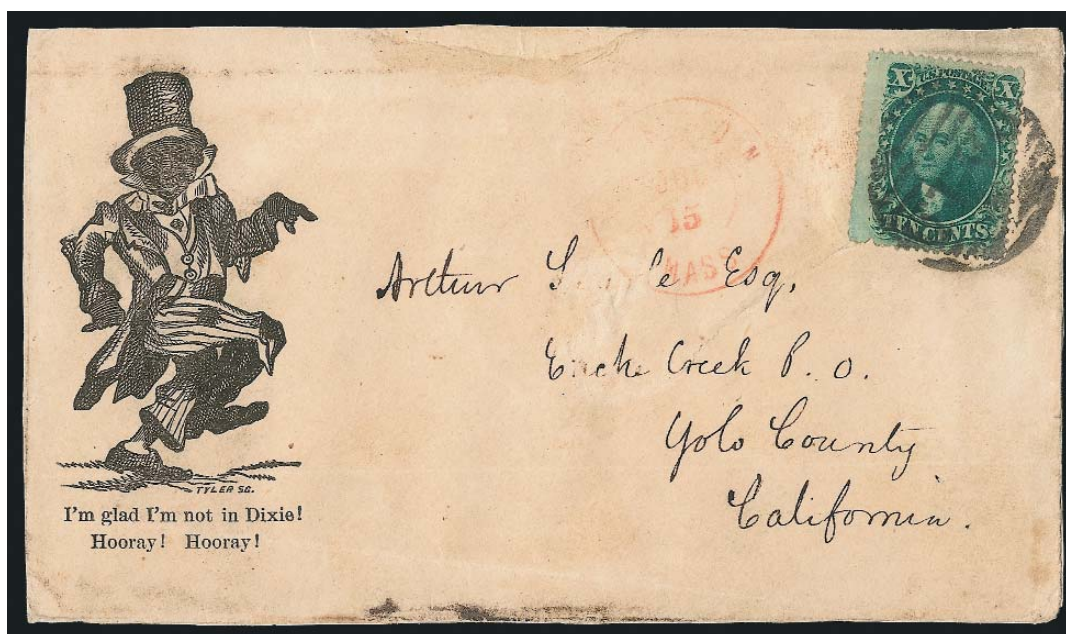 X U.S. POSTAGE X
TEN CENTS
JUL
15
MASS
Arthur Esq.
Cache Creek P. O.
Yolo County
California.
TYLER SC.
I'm glad I'm not in Dixie!
Hooray! Hooray!